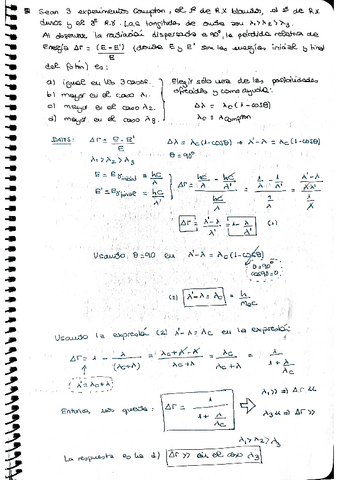 Sean 3 experimentos Compton, el 1º de RX blandos, el 2º de RX
duros y el 3º R.γ. Las longitudes de onda son λ₁>λ₂>λ₃.
Al observar la radiación dispersada a 90º, la pérdida relativa de
energía Δr = (E-E')/E (donde E y E' son las energías, inicial y final
del fotón) es:
a) igual en los 3 casos.
b) mayor en el caso λ₁.
c) mayor en el caso λ₂.
d) mayor en el caso λ₃.
Elegir sólo una de las posibilidades
ofrecidas y como ayuda:
Δλ = λc(1-cosθ)
λc = λcompton
DATOS: Δr = E-E'/E
Δλ = λc(1-cosθ) → λ'-λ = λc(1-cosθ)
λ₁>λ₂>λ₃
θ = 90º
E = hc/λ
E' = hc/λ'
Δr = (hc/λ - hc/λ')/(hc/λ) = (1/λ - 1/λ')/(1/λ) = ((λ'-λ)/(λλ'))/(1/λ)
Δr = (λ'-λ)/λ' = 1 - λ/λ' (1)
Usando θ=90 en λ'-λ = λc(1-cosθ)
θ=90º
cos90=0
(2) λ'-λ = λc = h/m₀c
Usando la expresión (2) λ'-λ = λc en la expresión:
Δr = 1 - λ/(λc+λ) = (λc+λ-λ)/(λc+λ) = λc/(λc+λ) = 1/(1+λ/λc)
λ' = λc+λ
Entonces nos queda: Δr = 1/(1+λ/λc)
λ₁ >> ⇒ Δr <<
λ₃ << ⇒ Δr >>
λ₁>λ₂>λ₃
La respuesta es la d) Δr >> en el caso λ₃